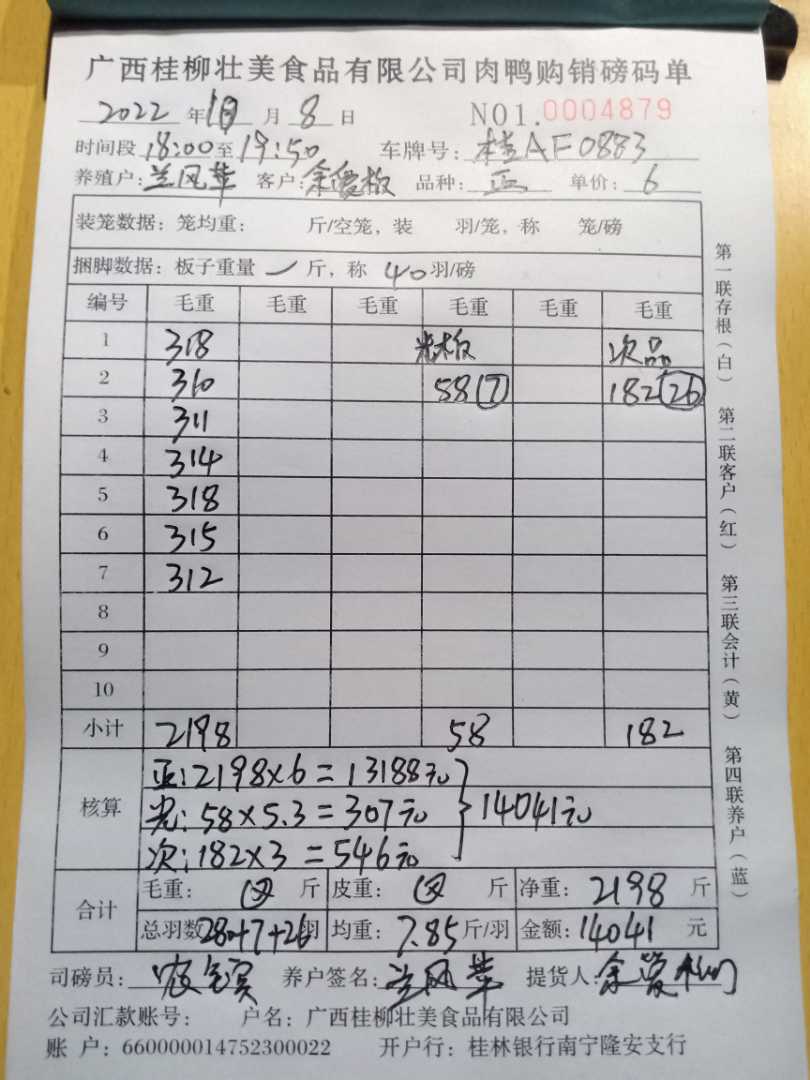 广西桂柳壮美食品有限公司肉鸭购销磅码单
2022 年 10 月 8 日 NO1.0004879
时间段 18:00 至 19:50 车牌号: 桂AF0883
养殖户: 兰凤苹 客户: 余爱板 品种: 正 单价: 6
装笼数据: 笼均重: 斤/空笼, 装 羽/笼, 称 笼/磅
捆脚数据: 板子重量 / 斤, 称 40 羽/磅
编号 毛重 毛重 毛重 毛重 毛重 毛重
1 318 光板 次品
2 310 58(7) 182(26)
3 311
4 314
5 318
6 315
7 312
8
9
10
小计 2198 58 182
核算
正: 2198×6=13188元
光: 58×5.3=307元 } 14041元
次: 182×3=546元
合计
毛重: 斤 皮重: 斤 净重: 2198 斤
总羽数 280+7+26 羽 均重: 7.85 斤/羽 金额: 14041 元
司磅员: 养户签名: 兰凤苹 提货人: 余爱
公司汇款账号: 户名: 广西桂柳壮美食品有限公司
账 户: 660000014752300022 开户行: 桂林银行南宁隆安支行
第一联存根(白) 第二联客户(红) 第三联会计(黄) 第四联养户(蓝)